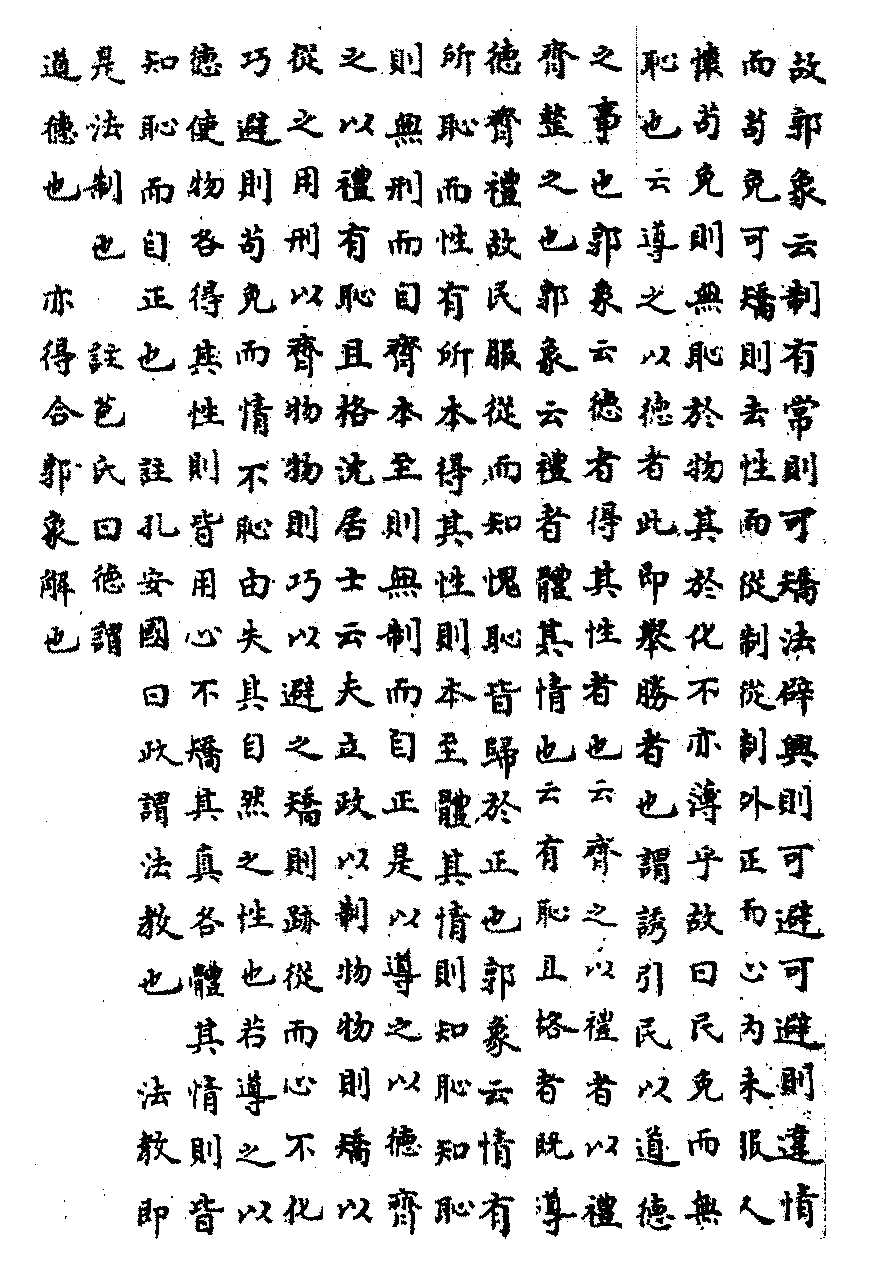 故郭象云制有常則可矯法辟興則可避可避則違情
而苟免可矯則去性而從制從制外正而心內未服人
懷苟免則無恥於物其於化不亦薄乎故曰民免而無
恥也云導之以德者此即舉勝者也謂誘引民以道德
之事也郭象云德者得其性者也云齊之以禮者以禮
齊整之也郭象云禮者體其情也云有恥且格者既導
德齊禮故民服從而知愧恥皆歸於正也郭象云情有
所恥而性有所本得其性則本至體其情則知恥知恥
則無刑而自齊本至則無制而自正是以導之以德齊
之以禮有恥且格沈居士云夫立政以制物物則矯以
從之用刑以齊物物則巧以避之矯則跡從而心不化
巧避則苟免而情不恥由失其自然之性也若導之以
德使物各得其性則皆用心不矯其真各體其情則皆
知恥而自正也　註孔安國曰政謂法教也　法教即
是法制也　註苞氏曰德謂
道德也　亦得合郭象解也